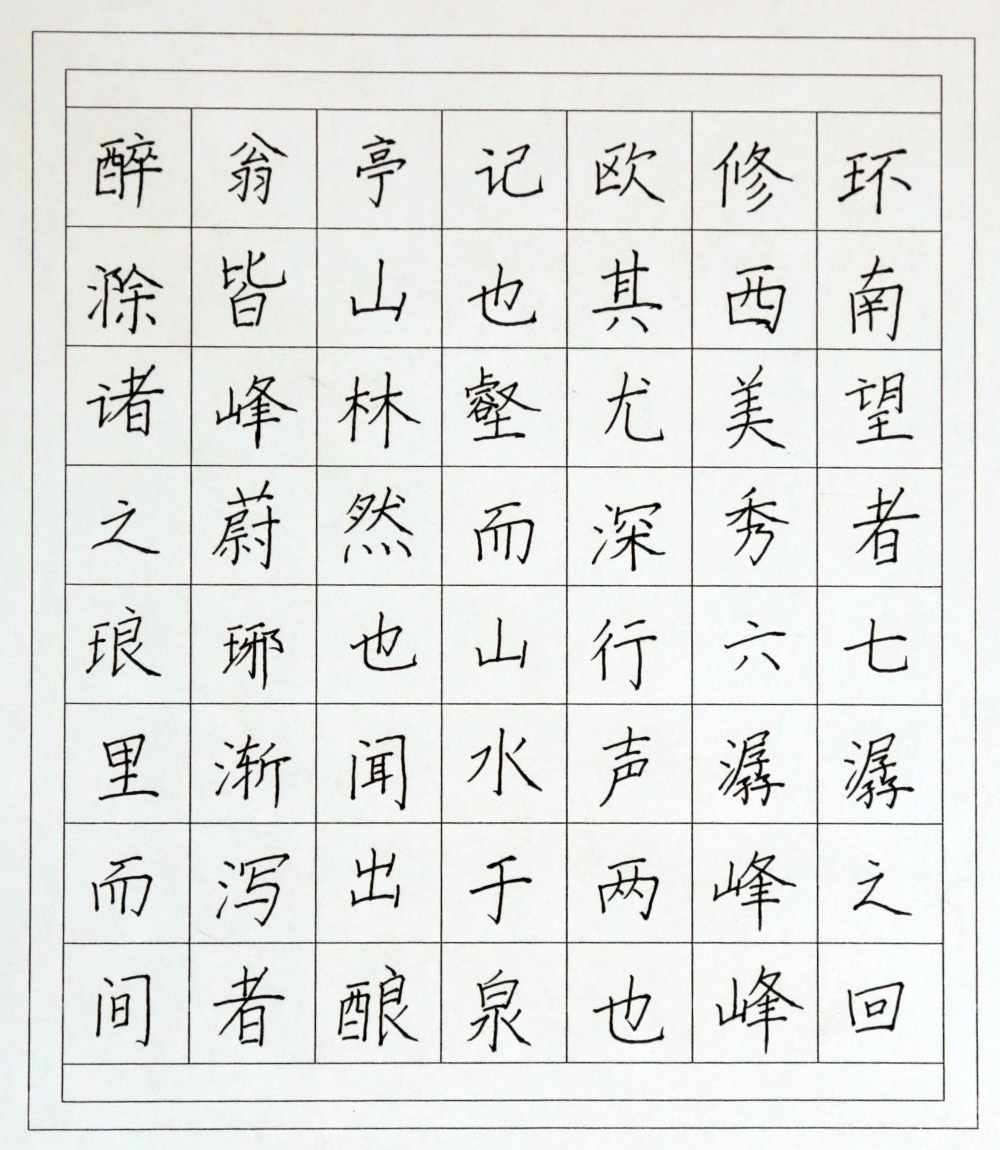 醉翁亭记欧修环
滁皆山也其西南
诸峰林壑尤美望
之蔚然而深秀者
琅琊也山行六七
里渐闻水声潺潺
而泻出于两峰之
间者酿泉也峰回